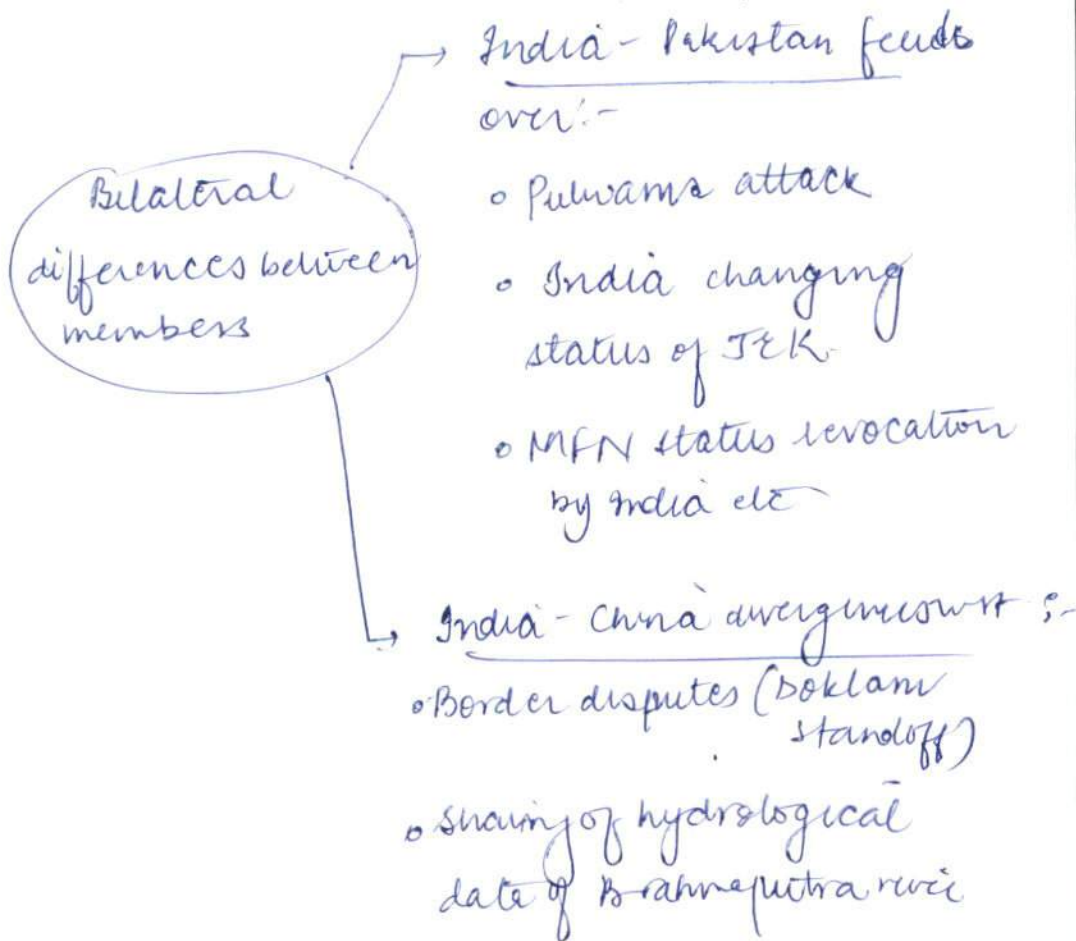 Bilateral
differences between
members
India - Pakistan feuds
over:-
• Pulwama attack
• India changing
status of J&K.
• MFN status revocation
by India etc
India - China divergences wrt :-
• Border disputes (Doklam
standoff)
• sharing of hydrological
data of Brahmaputra river